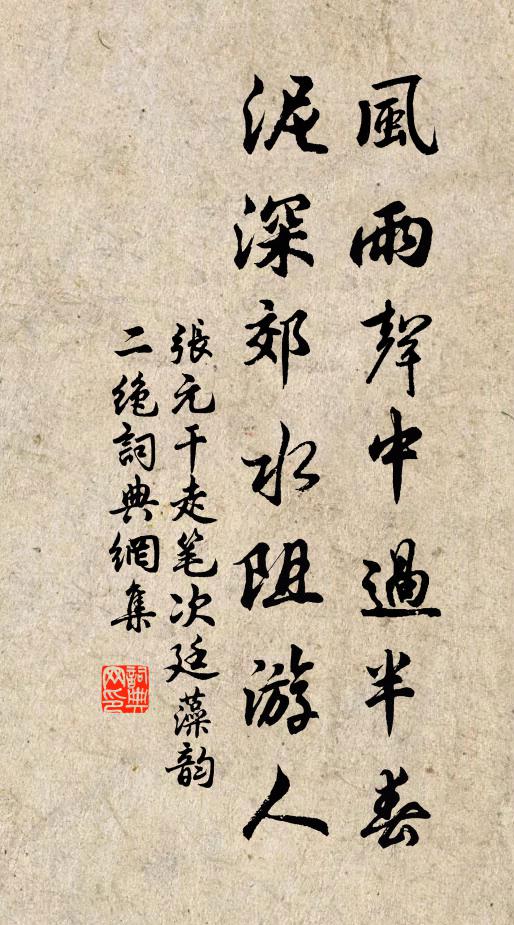 風雨聲中過半春
泥深郊水阻游人
張元干走笔次廷藻韵
二绝詞典網集
詞典
网印